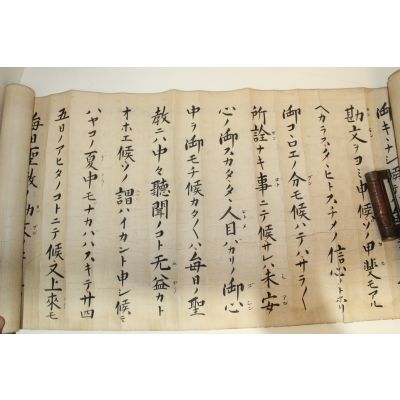 御キヽナシ
勘文ヲヨミ申候ソノ甲斐モアル
ヘカラスタヽヒトスチメノ信心ノトホリ
御コヽロエノ分モ候ハテハサラ〱
所詮ナキ事ニテ候サレハ未安
心ノ御スカタヽタヽ人目バカリノ御心
中ヲ御モチ候カタ〱ハ毎日ノ聖
教ニハ中々聽聞ノコト无益カト
オホエ候ソノ謂ハイカント申シ候ニ
ハヤコノ夏中モナカハハスキテ廿四
五日ノアヒタノコトニテ候又上來モ
毎日聖教ノ